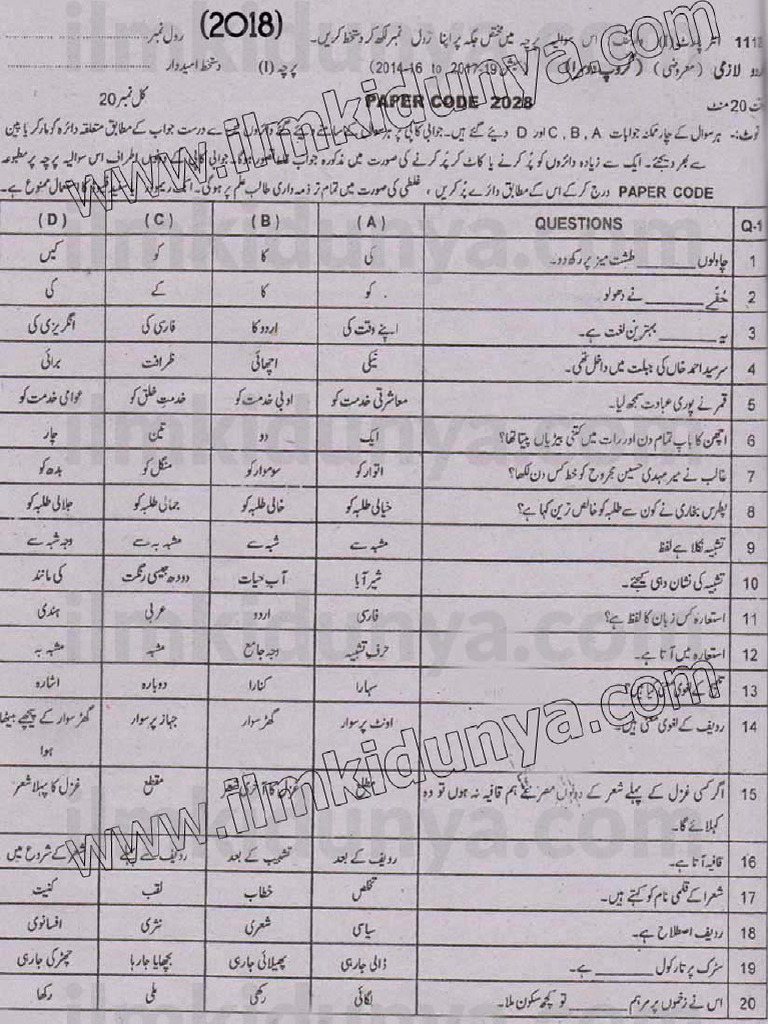 (2018)
1118 انٹر پارٹ (I) اس سوالیہ پرچہ میں مختص جگہ پر اپنا رول نمبر لکھ کر دستخط کریں۔ رول نمبر
اردو لازمی (معروضی) (سیشن 2017-19 to 2014-16) پرچہ (I) دستخط امیدوار
وقت 20 منٹ PAPER CODE 2028 کل نمبر 20
نوٹ:- ہر سوال کے چار ممکنہ جوابات A ,B ,C اور D دیئے گئے ہیں۔ جوابی کاپی پر ہر سوال کے سامنے دیئے گئے دائروں میں سے درست جواب کے مطابق متعلقہ دائرہ کو مارکر یا پین
سے بھر دیجئے۔ ایک سے زیادہ دائروں کو پُر کرنے یا کاٹ کر پُر کرنے کی صورت میں مذکورہ جواب غلط تصور ہوگا۔ جوابی کاپی کے دونوں اطراف اس سوالیہ پرچہ پر مطبوعہ
PAPER CODE درج کر کے اس کے مطابق دائرے پُر کریں ، غلطی کی صورت میں تمام تر ذمہ داری طالب علم پر ہوگی۔ استعمال ممنوع ہے۔
Q-1 QUESTIONS (A) (B) (C) (D)
1 چاولوں ______ طشت میز پر رکھ دو۔ کی کا کو کیں
2 حُقے ______ نے دھولو کو کا کے کی
3 یہ ______ بہترین لغت ہے۔ اپنے وقت کی اردو کا فارسی کی انگریزی کی
4 سرسید احمد خاں کی جبلت میں داخل تھی۔ نیکی اچھائی ظرافت برائی
5 قمر نے پوری عبادت سمجھ لیا۔ معاشرتی خدمت کو ادبی خدمت کو خدمتِ خلق کو عوامی خدمت کو
6 اچھن کا باپ تمام دن اور رات میں کتنی بیڑیاں پیتا تھا؟ ایک دو تین چار
7 غالب نے میر مہدی حسین مجروح کو خط کس دن لکھا؟ اتوار کو سوموار کو منگل کو بدھ کو
8 پطرس بخاری نے کون سے طلبہ کو خالص زین کہا ہے؟ خیالی طلبہ کو خالی طلبہ کو جمالی طلبہ کو جلالی طلبہ کو
9 تشبیہ نکلا ہے لفظ مشبہ سے شبہ سے مشبہ بہ سے وجہ شبہ سے
10 تشبیہ کی نشان دہی کیجئے۔ شیر آیا آب حیات دودھ جیسی رنگت کی مانند
11 استعارہ کس زبان کا لفظ ہے؟ فارسی اردو عربی ہندی
12 استعارہ میں آتا ہے۔ حرفِ تشبیہ وجہ جامع مشبہ مشبہ بہ
13 کے لغوی سہارا کنارا دوبارہ اشارہ
14 ردیف کے لغوی معنی ہیں۔ اونٹ پر سوار گھڑ سوار جہاز پر سوار گھڑ سوار کے پیچھے بیٹھا
ہوا
15 اگر کسی غزل کے پہلے شعر کے دونوں مصرعے ہم قافیہ نہ ہوں تو وہ مطلع غزل کا آخری شعر مقطع غزل کا پہلا شعر
کہلائے گا۔
16 قافیہ آتا ہے۔ ردیف کے بعد تشبیب کے بعد ردیف سے پہلے شعر کے شروع میں
17 شعرا کے قلمی نام کو کہتے ہیں۔ تخلص خطاب لقب کنیت
18 ردیف اصطلاح ہے۔ سیاسی شعری نثری افسانوی
19 سڑک پر تارکول ______ ہے۔ ڈالی جارہی پھیلائی جارہی بچھایا جارہا چھڑکی جارہی
20 اس نے زخموں پر مرہم ______ تو کچھ سکون ملا۔ لگائی رکھی ملی رکھا
www.ilmkidunya.com
www.ilmkidunya.com
ilmkidunya.com
ilmkidunya.com
ilmkidunya.com
ilmkidunya.com